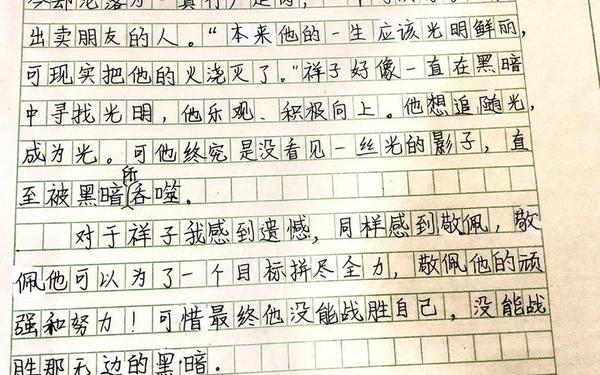 出卖朋友的人。“本来他的一生应该光明鲜丽，
可现实把他的火浇灭了。”祥子好像一直在黑暗
中寻找光明，他乐观、积极向上。他想追随光，
成为光。可他终究是没看见一丝光的影子，直
至被黑暗所吞噬。
对于祥子我感到遗憾，同样感到敬佩，敬
佩他可以为了一个目标拼尽全力，敬佩他的顽
强和努力！可惜最终他没能战胜自己，没能战
胜那无边的黑暗.